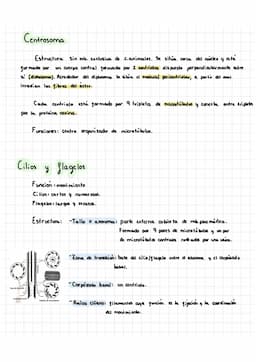 Centrosoma
Estructura: Sin mb, exclusiva de c.animales. Se sitúa cerca del núcleo y está
formado por un cuerpo central formado por 2 centriolos dispuesto perpendicularmente entre
sí (diplosoma). Alrededor del diplosoma se sitúa el material pericentriolar, a partir del cual
irradian las fibras del áster.
Cada centriolo está formado por 9 tripletes de microtúbulos y conecta entre tripletes
por la proteína nexina.
Funciones: centro organizador de microtúbulos.
Cilios y flagelos
Función: movimiento
Cilios: cortos y numerosos.
Flagelos: largos y escasos.
Estructura: -Tallo o axonema: parte externa cubierta de mb plasmática.
Formado por 9 pares de microtúbulos y un par
de microtúbulos centrales rodeados por una vaina.
-Zona de transición: base del cilio/flagelo entre el axonema y el corpúsculo
basal.
-Corpúsculo basal: un centriolo.
-Raíces ciliares: filamentos cuya función es la fijación y la coordinación
del movimiento.